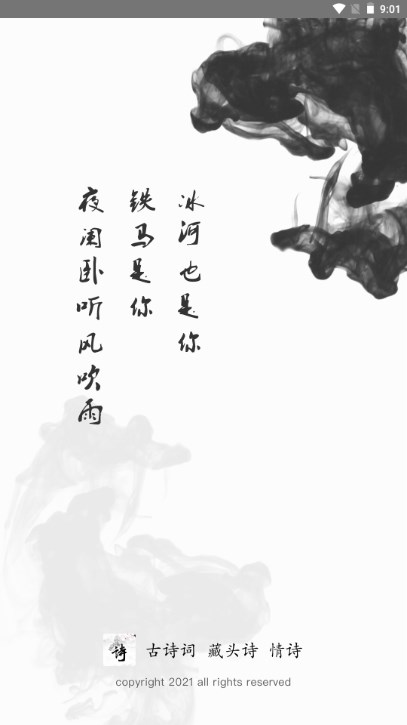 9:01
夜阑卧听风吹雨
铁马是你
冰河也是你
诗
古诗词 藏头诗 情诗
copyright 2021 all rights reserved